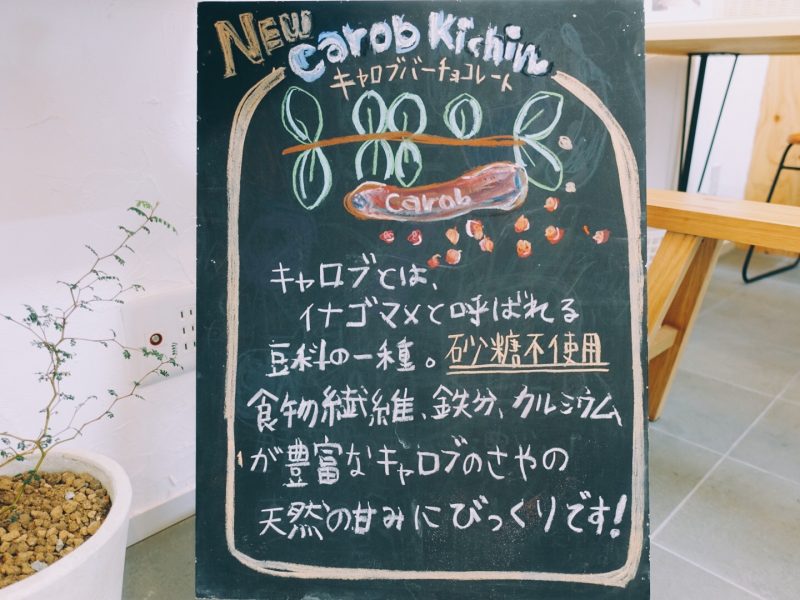 NEW
Carob Kichin
キャロブバーチョコレート
Carob
キャロブとは、
イナゴマメと呼ばれる
豆科の一種。砂糖不使用
食物繊維、鉄分、カルシウム
が豊富なキャロブのさやの
天然の甘みにびっくりです!